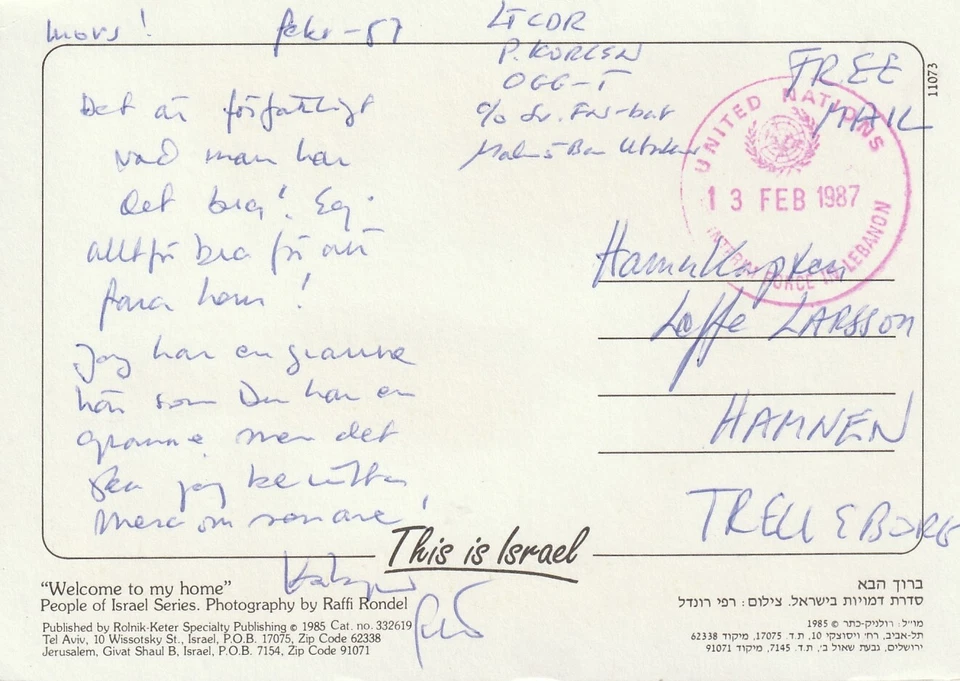 Mors!
febr-87
Det är förfärligt
vad man har
det bra! Ej
alltför bra för att
fara hem!
Jag har en granne
här som Du har en
granne, men det
ska jag berätta
mera om senare!
LTCDR
P. KORLEN
OGG-T
c/o
FREE
MAIL
UNITED NATIONS
13 FEB 1987
INTERIM FORCE IN LEBANON
Hamnkapten
Loffe LARSSON
HAMNEN
TRELLEBORG
11073
This is Israel
"Welcome to my home"
People of Israel Series. Photography by Raffi Rondel
Published by Rolnik-Keter Specialty Publishing © 1985 Cat. no. 332619
Tel Aviv, 10 Wissotsky St., Israel, P.O.B. 17075, Zip Code 62338
Jerusalem, Givat Shaul B, Israel, P.O.B. 7154, Zip Code 91071
ברוך הבא
סדרת דמויות בישראל. צילום: רפי רונדל
מו״ל: רולניק-כתר © 1985
תל-אביב, רח׳ ויסוצקי 10, ת.ד. 17075, מיקוד 62338
ירושלים, גבעת שאול ב׳, ת.ד. 7145, מיקוד 91071